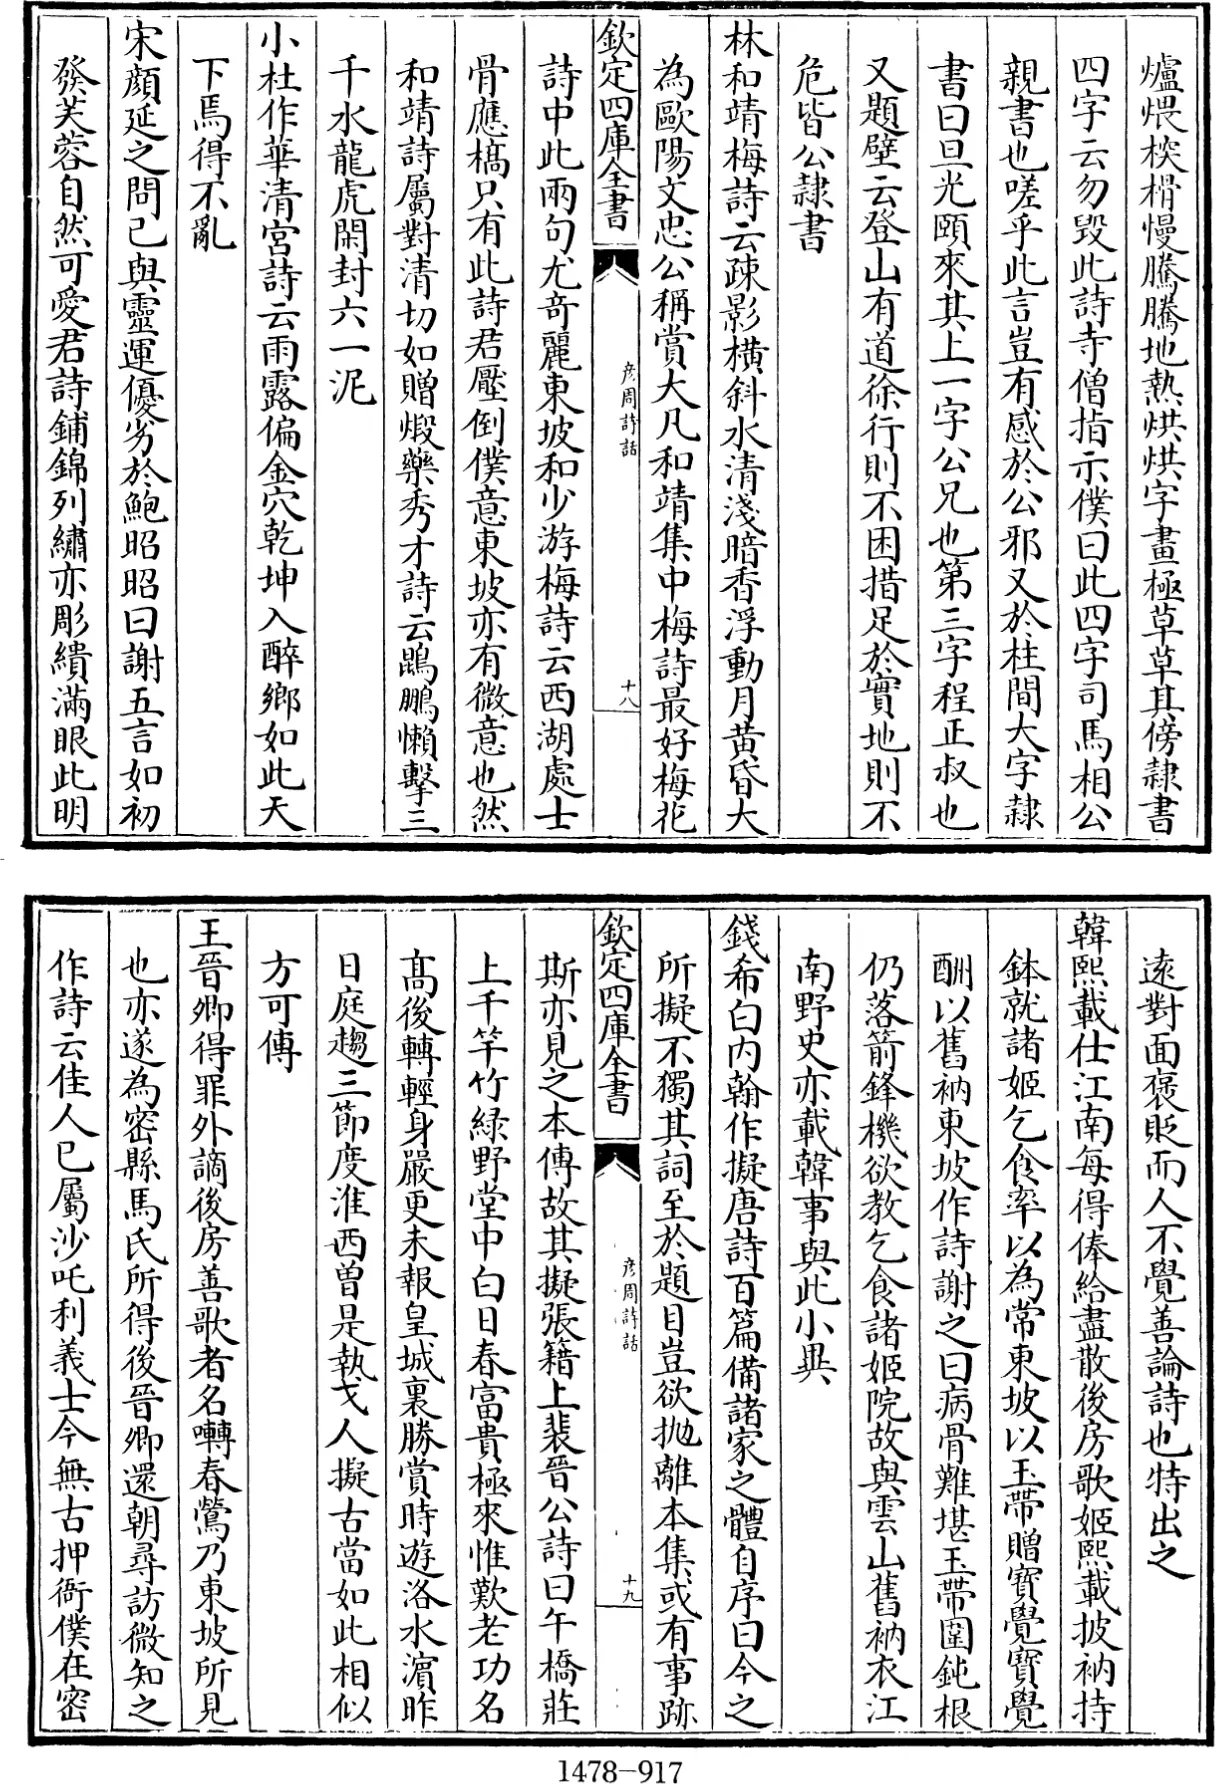 爐煨榾柮慢騰騰地熱烘烘字畫極草草其傍隸書
四字云勿毀此詩寺僧指示僕曰此四字司馬相公
親書也嗟乎此言豈有感於公邪又於柱間大字隸
書曰旦光頤來其上一字公兄也第三字程正叔也
又題壁云登山有道徐行則不困措足於實地則不
危皆公隸書
林和靖梅詩云疎影橫斜水清淺暗香浮動月黃昏大
為歐陽文忠公稱賞大凡和靖集中梅詩最好梅花
欽定四庫全書
彦周詩話
十八
詩中此兩句尤奇麗東坡和少游梅詩云西湖處士
骨應槁只有此詩君壓倒僕意東坡亦有微意也然
和靖詩屬對清切如贈煅藥秀才詩云鵾鵬懶擊三
千水龍虎閑封六一泥
小杜作華清宮詩云雨露偏金穴乾坤入醉鄉如此天
下焉得不亂
宋顔延之問已與靈運優劣於鮑昭昭曰謝五言如初
發芙蓉自然可愛君詩鋪錦列繡亦彫繢滿眼此明
遠對面褒貶而人不覺善論詩也特出之
韓熙載仕江南每得俸給盡散後房歌姬熙載披衲持
鉢就諸姬乞食率以為常東坡以玉帶贈寶覺寶覺
酬以舊衲東坡作詩謝之曰病骨難堪玉帶圍鈍根
仍落箭鋒機欲教乞食諸姬院故與雲山舊衲衣江
南野史亦載韓事與此小異
錢希白內翰作擬唐詩百篇備諸家之體自序曰今之
所擬不獨其詞至於題目豈欲拋離本集或有事跡
欽定四庫全書
彦周詩話
十九
斯亦見之本傳故其擬張籍上裴晉公詩曰午橋莊
上千竿竹綠野堂中白日春富貴極來惟歎老功名
高後轉輕身嚴更未報皇城裏勝賞時遊洛水濱昨
日庭趨三節度淮西曽是執戈人擬古當如此相似
方可傳
王晉卿得罪外謫後房善歌者名囀春鶯乃東坡所見
也亦遂為密縣馬氏所得後晉卿還朝尋訪微知之
作詩云佳人已屬沙吒利義士今無古押衙僕在密
1478-917